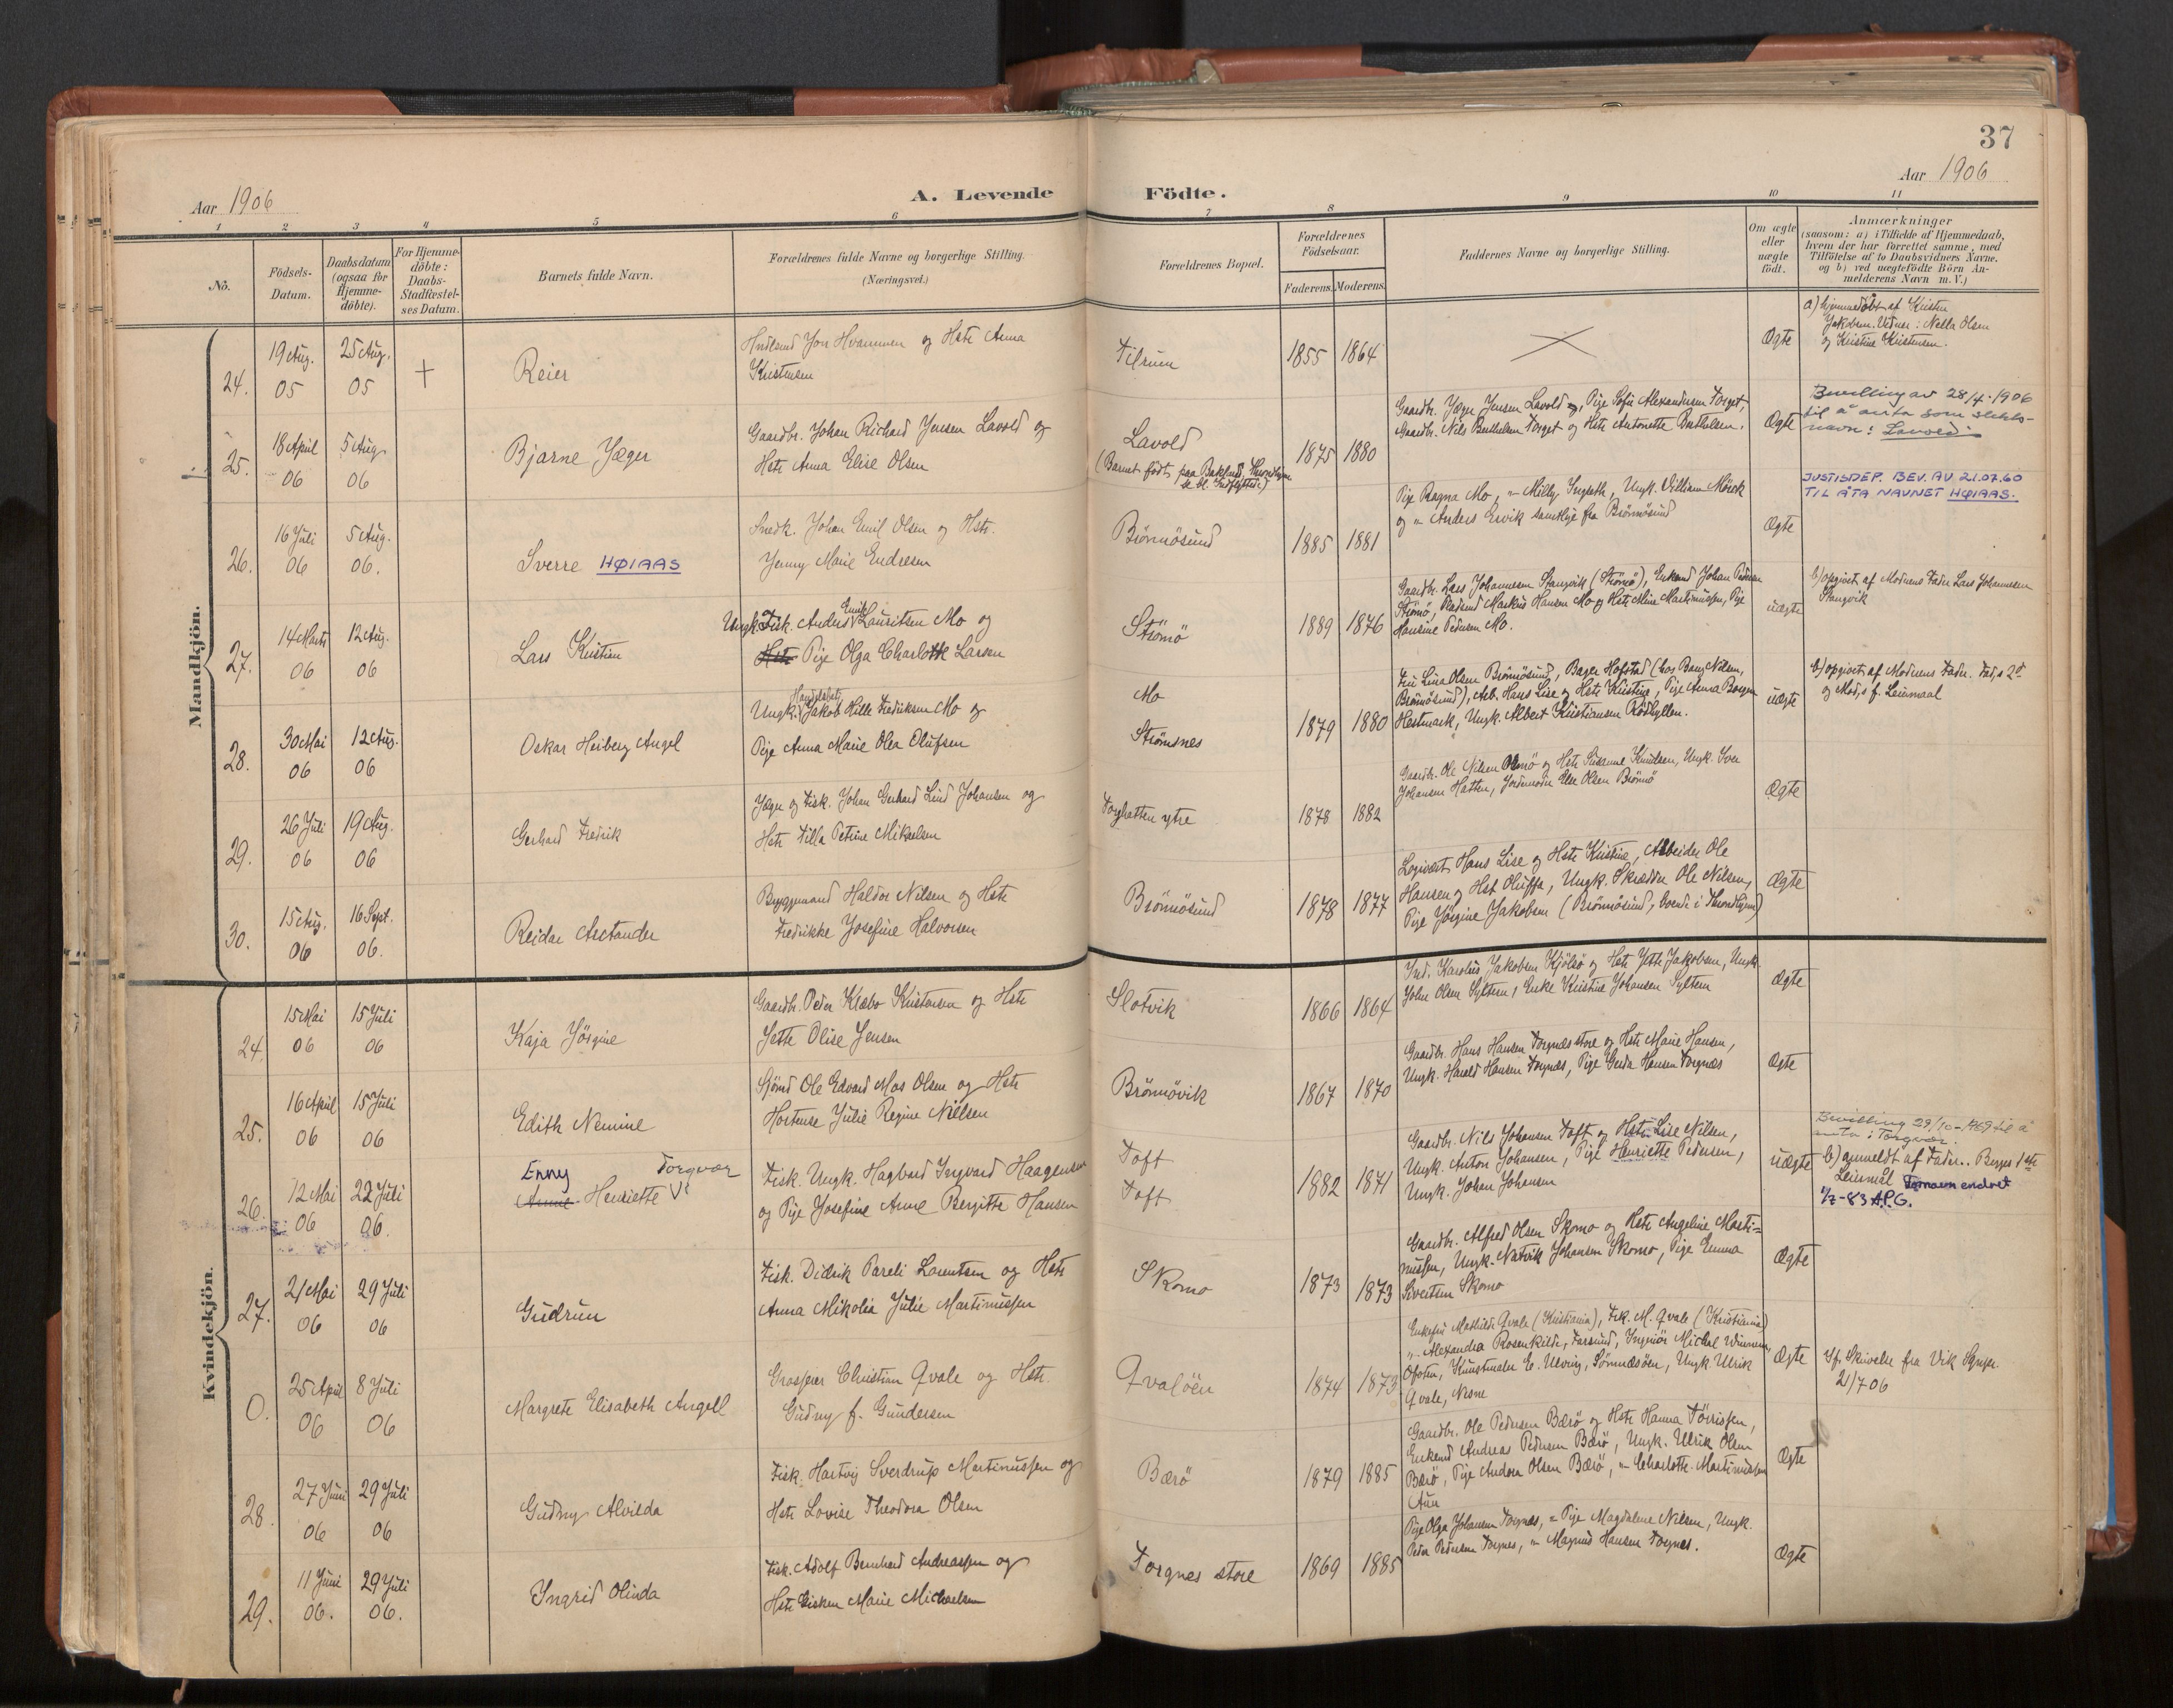 37
Aar 1906
A. Levende
Födte.
Aar 1906
1 2 3 4 5 6 7 8 9 10 11
Nö.
Födsels-
Datum.
Daabsdatum
(ogsaa for
Hjemme-
döbte).
For Hjemme-
döbte:
Daabs-
Stadfæstel-
ses Datum.
Barnets fulde Navn.
Forældrenes fulde Navne og borgerlige Stilling.
(Næringsvei.)
Forældrenes Bopæl.
Forældrenes
Födselsaar.
Faderens. Moderens.
Faddernes Navne og borgerlige Stilling.
Om ægte
eller
uægte
födt.
Anmærkninger
(saasom: a) i Tilfælde af Hjemmedaab,
hvem der har forrettet samme, med
Tilföielse af to Daabsvidners Navne.
og b) ved uægtefödte Börn An-
melderens Navn m. V.)
Mandkjön.
24.
19 Aug.
05
25 Aug.
05
+
Reier
Jon Hvammen og Hstr Anna
Kristensen
Tilrum
1855 1864
Ægte
a) hjemmedöbt af Kristen
Jakobsen. Vidner: Nella Olsen
og Kristine Kristensen.
25.
18 April
06
5 Aug.
06
Bjarne Jæger
Gaardbr. Johan Richard Jensen Lavold og
Hstr Anna Elise Olsen
Lavold
(Barnet födt paa Baklandet, Throndhjem
se bl. Indflyttede)
1875 1880
Gaardbr. Jæger Jensen Lavold og Pige Sofie Alexandersen Torget,
Gaardbr. Nils Berthelsen Torget og Hstr Antonette Berthelsen.
Ægte
Bevilling av 28/4.1906
til å anta som slekts-
navn: Lavold.
26.
16 Juli
06
5 Aug.
06.
Sverre HØIAAS
Snedk. Johan Emil Olsen og Hstr.
Jenny Marie Endresen
Brönnösund
1885 1881
Pige Ragna Mo, " Milly Ingreth, Ungk. William Mörck
og " Anders Ervik samtlige fra Brönnösund
Ægte
JUSTISDEP. BEV. AV 21.07.60
TIL Å TA NAVNET HØIAAS.
27.
14 Marts
06
12 Aug.
06
Lars Kristian
Ungk. Fisk. Anders Emil Lauritsen Mo og
Hstr Pige Olga Charlotte Larsen
Strömö
1889 1876
Gaardbr. Lars Johannesen Stangvik (Strömö), Enkemd Johan Pedersen
Strömö, Markus Hansen Mo og Hstr Mine Martinussen, Pige
Hansine Pedersen Mo.
uægte
b) opgivet af Moderens Fader Lars Johannesen
Stangvik
28.
30 Mai
06
12 Aug.
06
Oskar Heiberg Angel
Ungk. Handelsbetj. Jakob Hille Fredriksen Mo og
Pige Anna Marie Olea Olufsen
Mo
Strömsnes
1879 1880
Fru Lina Olsen Brönnösund, Bager Hofstad (hos Bang Nilsen,
Brönnösund), Arb. Hans Lise og Hstr Kristine, Pige Anna Borgen
Hestmark, Ungk. Albert Kristiansen Rödhyllen.
uægte
b) opgivet af Moderens Fader. Fad,s 2d
og Mod,s f. Leiermaal
29.
26 Juli
06
19 Aug.
06
Gerhard Fredrik
Jæger og Fisk. Johan Gerhard Lind Johansen og
Hstr Tilla Petrine Mikaelsen
Torghatten ytre
1878 1882
Gaardbr. Ole Nilsen Brönnö og Hstr Susanne Knudsen, Ungk. Iver
Johansen Hatten, Jordmoder Else Olsen Brönnö
Ægte
30.
15 Aug.
06
16 Sept.
06.
Reidar Arctander
Byggmand Haldor Nilsen og Hstr
Fredrikke Josefine Halvorsen
Brönnösund
1878 1877
Logivært Hans Lise og Hstr Kristine, Arbeider Ole
Hansen og Hst Oluffa, Ungk. Skrædder Ole Nilsen,
Pige Jörgine Jakobsen (Brönnösund, boende i Throndhjem)
Ægte
Kvindekjön.
24.
15 Mai
06
15 Juli
06
Kaja Jörgine
Gaardbr. Peder Kræbo Kristensen og Hstr
Jette Olise Jensen
Slotvik
1866 1864
Ind. Karolius Jakobsen Kjölsö og Hstr Jette Jakobsen, Ungk.
John Olsen Syltern, Enke Kristine Johansen Syltern
Ægte
25.
16 April
06
15 Juli
06
Edith Nemine
Sjömd Ole Edvard Mos Olsen og Hstr
Hortense Julie Regine Nielsen
Brönnövik
1867 1870
Gaardbr. Hans Hansen Torgnes store og Hstr Marie Hansen,
Ungk. Harald Hansen Torgnæs, Pige Gerda Hansen Torgnæs
Ægte
26.
12 Mai
06
22 Juli
06.
Enny Torgvær
Henriette
Fisk. Ungk. Hagbard Ingvard Haagensen
og Pige Josefine Anne Bergitte Hansen
Toft
Toft
1882 1871
Gaardbr. Nils Johansen Toft og Hstr Lise Nilsen,
Ungk. Anton Johansen, Pige Henriette Pedersen,
Ungk. Johan Johansen
uægte
Bevilling 29/10-1969 til å
anta: Torgvær.
b) anmeldt af Fader.. Begges 1ste
Leiermål Fornavn endret
1/7-83 A.P.G.
27.
21 Mai
06
29 Juli
06
Gudrun
Fisk. Didrik Pareli Lorentsen og Hstr
Anna Mikolea Julie Martinussen
Skomo
1873 1873
Gaardbr. Alfred Olsen Skomo og Hstr Angeline Marti=
nussen, Ungk. Natvik Johansen Skomo, Pige Emma
Sivertsen Skomo
Ægte
0.
25 April
06
8 Juli
06
Margrete Elisabeth Angell
Grosserer Christian Qvale og Hstr.
Gudny f. Gundersen
Qvalöen
1874 1873
Enkefru Mathilde Qvale (Kristiania), Frk. M. Qvale (Kristiania)
" Alexandra Rosenkilde, Farsund, Ingeniör Michal
Ofoten, Kunstmaler E. Ulving, Sömnesöen, Ungk. Ulrik
Qvale, Nesne
Ægte
If. Skrivelse fra Vik Sgnpr.
2/7 06
28.
27 Juni
06
29 Juli
06
Gudny Alvilda
Fisk. Hartvig Sverdrup Martinussen og
Hstr Lovise Theodora Olsen
Bærö
1879 1885
Gaardbr. Ole Pedersen Bærö og Hstr Hanna Törrissen,
Enkemd Andreas Pedersen Bærö, Ungk. Ulrik Olsen
Bærö, Pige Andora Olsen Bærö, " Charlotte Martinussen
Aun
Ægte
29.
11 Juni
06.
29 Juli
06.
Ingrid Olinda
Fisk. Adolf Bernhard Andreassen og
Hstr Gisken Marie Michaelsen
Torgnes store
1869 1885
Pige Olga Johansen Torgnes, = Pige Magdalene Nilsen, Ungk.
Peder Pedersen Torgnes, " Magnus Hansen Torgnes.
Ægte